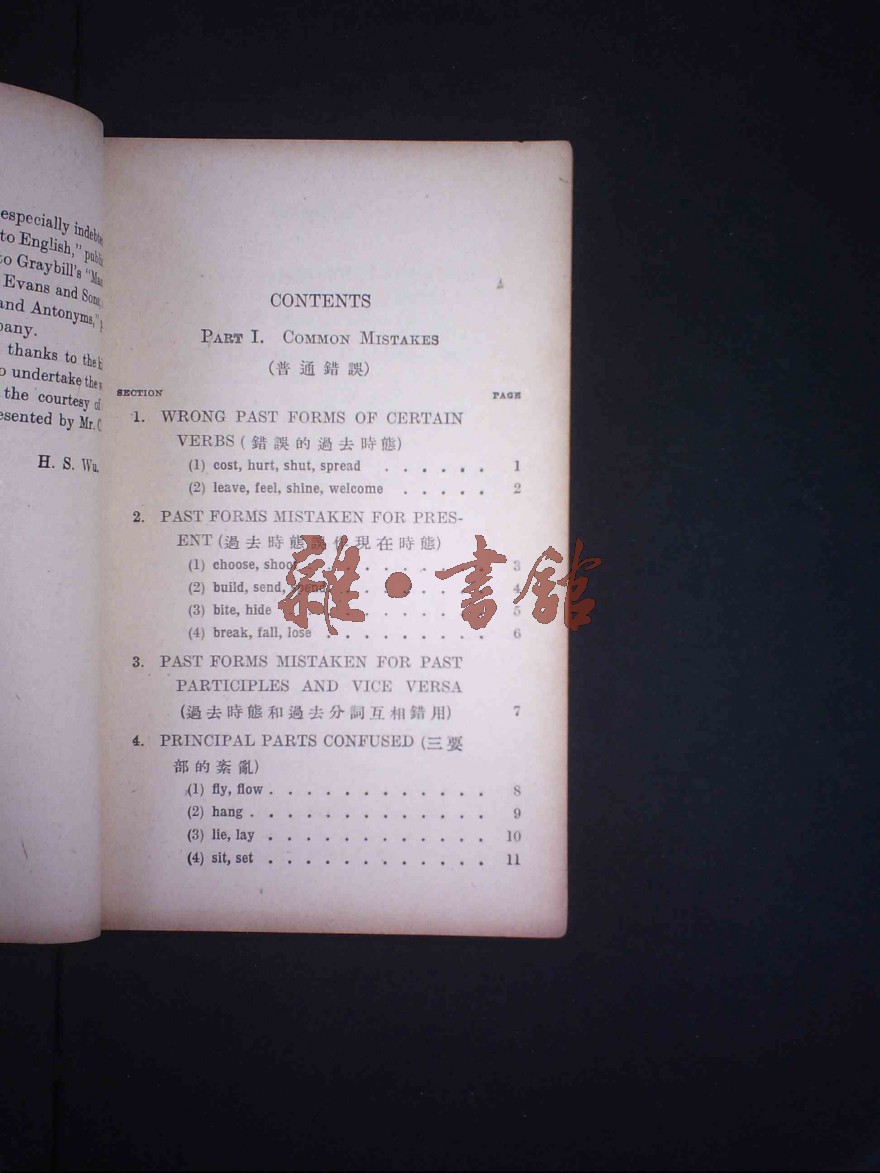 especially
to English,"
to Graybill's
Evans and Sons,
and Antonyms,"
pany.
thanks to the
to undertake the
the courtesy of
presented by Mr. C
H. S. Wu.
CONTENTS
PART I. COMMON MISTAKES
(普通錯誤)
SECTION PAGE
1. WRONG PAST FORMS OF CERTAIN
VERBS (錯誤的過去時態)
(1) cost, hurt, shut, spread . . . . . . 1
(2) leave, feel, shine, welcome . . . . . 2
2. PAST FORMS MISTAKEN FOR PRES-
ENT (過去時態誤作現在時態)
(1) choose, shoot . . . . . . . . 3
(2) build, send, spend . . . . . . . 4
(3) bite, hide . . . . . . . . . 5
(4) break, fall, lose . . . . . . . . . 6
3. PAST FORMS MISTAKEN FOR PAST
PARTICIPLES AND VICE VERSA
(過去時態和過去分詞互相錯用) 7
4. PRINCIPAL PARTS CONFUSED (三要
部的紊亂)
(1) fly, flow . . . . . . . . . . . . 8
(2) hang . . . . . . . . . . . . . 9
(3) lie, lay . . . . . . . . . . . . 10
(4) sit, set . . . . . . . . . . . . 11
雜·書館